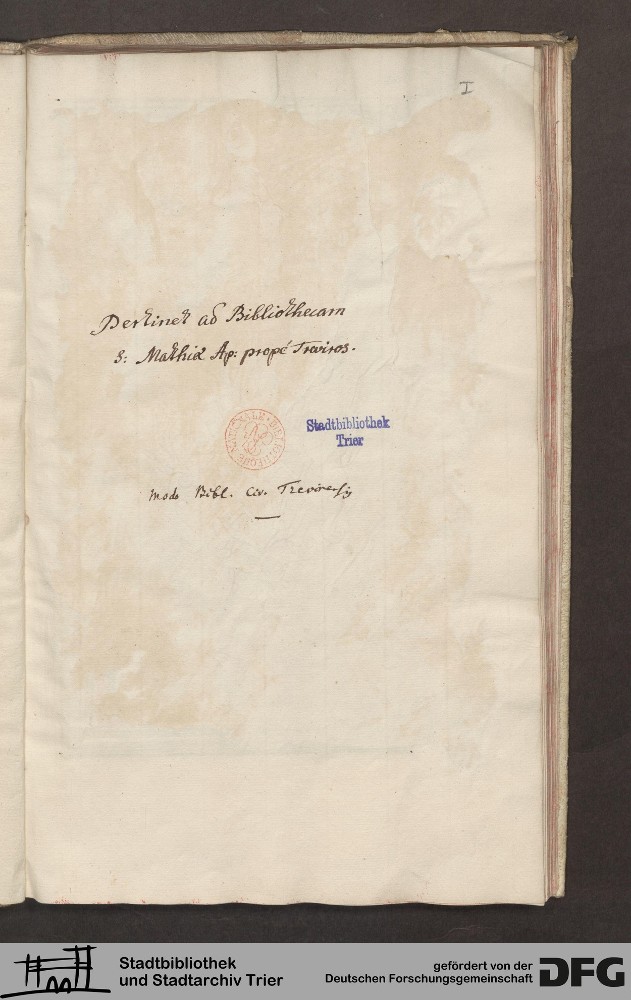 I
Pertinet ad Bibliothecam
S: Mathiæ Ap: propé Treviros.
BIBLIOTHEQUE NATIONALE
Stadtbibliothek
Trier
modo Bibl. Civ. Trevirensis
Stadtbibliothek
und Stadtarchiv Trier
gefördert von der
Deutschen Forschungsgemeinschaft
DFG